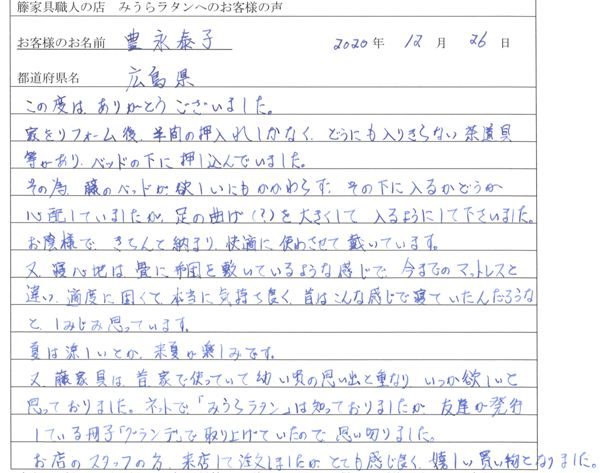 籐家具職人の店 みうらラタンへのお客様の声
お客様のお名前 豊永泰子 2020年 12月 26日
都道府県名 広島県
この度は、ありがとうございました。
家をリフォーム後、半間の押入れしかなく、どうにも入りきらない茶道具
等があり、ベッドの下に押し込んでいました。
その為、籐のベッドが欲しいにもかかわらず、その下に入るかどうか
心配していましたが、足の曲げ(?)を大きくして入るようにして下さいました。
お陰様で、きちんと納まり、快適に使わさせて戴いています。
又、寝心地は畳に布団を敷いているような感じで、今までのマットレスと
違い、適度に固くて、本当に気持ち良く、昔はこんな感じで寝ていたんだろうな
と、しみじみ思っています。
夏は涼しいとか、来夏が楽しみです。
又、籐家具は、昔、家で使っていて幼い頃の思い出と重なり、いつか欲しいと
思っておりました。ネットで「みうらラタン」は知っておりましたが、友達が発行
している冊子「グランデ」で取り上げていたので、思い切りました。
お店のスタッフの方、来店して注文しましたが、とても感じ良く、嬉しい買い物となりました。